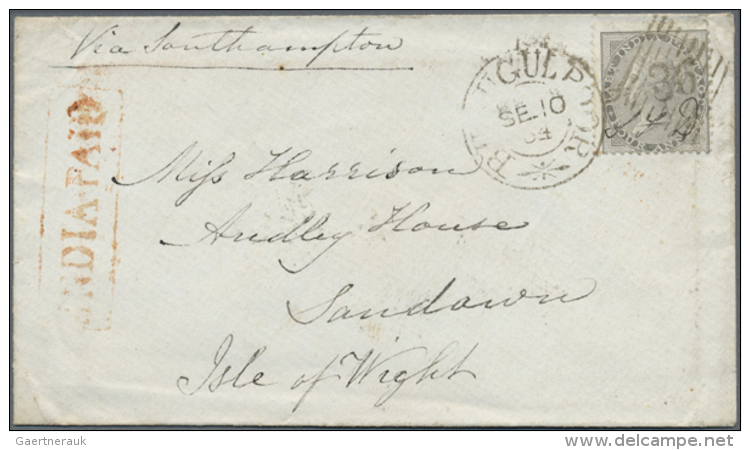 Via Southampton
INDIA PAID
GULPOOR
SE 10
64
35
EAST INDIA
Miss Harrison
Audley House
Sandown
Isle of Wight
Gaertnerauk
www.delcampe.net